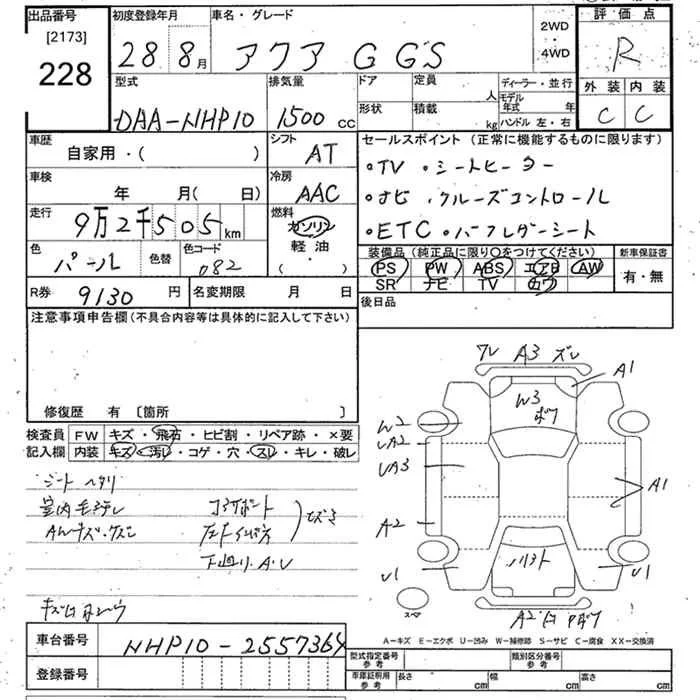 出品番号 初度登録年月 車名・グレード 2WD・4WD 評価点
[2173]
228 28 8月 アクア G G'S R
型式 排気量 ドア 定員 人 ディーラー・並行 外装 内装
DAA-NHP10 1500cc 形状 積載 kg モデル年式 年 ハンドル 左・右 C C
車歴 シフト セールスポイント (正常に機能するものに限ります)
自家用・( ) AT ・TV ・シートヒーター
車検 冷房 ・ナビ ・クルーズコントロール
年 月(日) AAC ・ETC
走行 燃料
9万2千505km ガソリン
軽油
・( )
色 色替 色コード 装備品 (純正品に限り○をつけてください) 新車保証書
パール 082 PS PW ABS エアB AW 有・無
SR ナビ TV カワ
R券 9130円 名変期限 月 日 後日品
注意事項申告欄(不具合内容等は具体的に記入して下さい)
修復歴 有 〔箇所 〕
検査員 FW キズ・飛石・ヒビ割・リペア跡・×要
記入欄 内装 キズ・汚レ・コゲ・穴・スレ・キレ・破レ
シート ヘタリ
コアサポート
下廻り A.U
A3 ズレ
A1
W3
W2
UA2
UA3
A2
U1
A1
U1
スペア
A-キズ E-エクボ U-凹み W-補修跡 S-サビ C-腐食 XX-交換済
車台番号 NHP10-2557364
登録番号
型式指定番号 参考 類別区分番号 参考
車庫証明用 参考 長さ cm 幅 cm 高さ cm